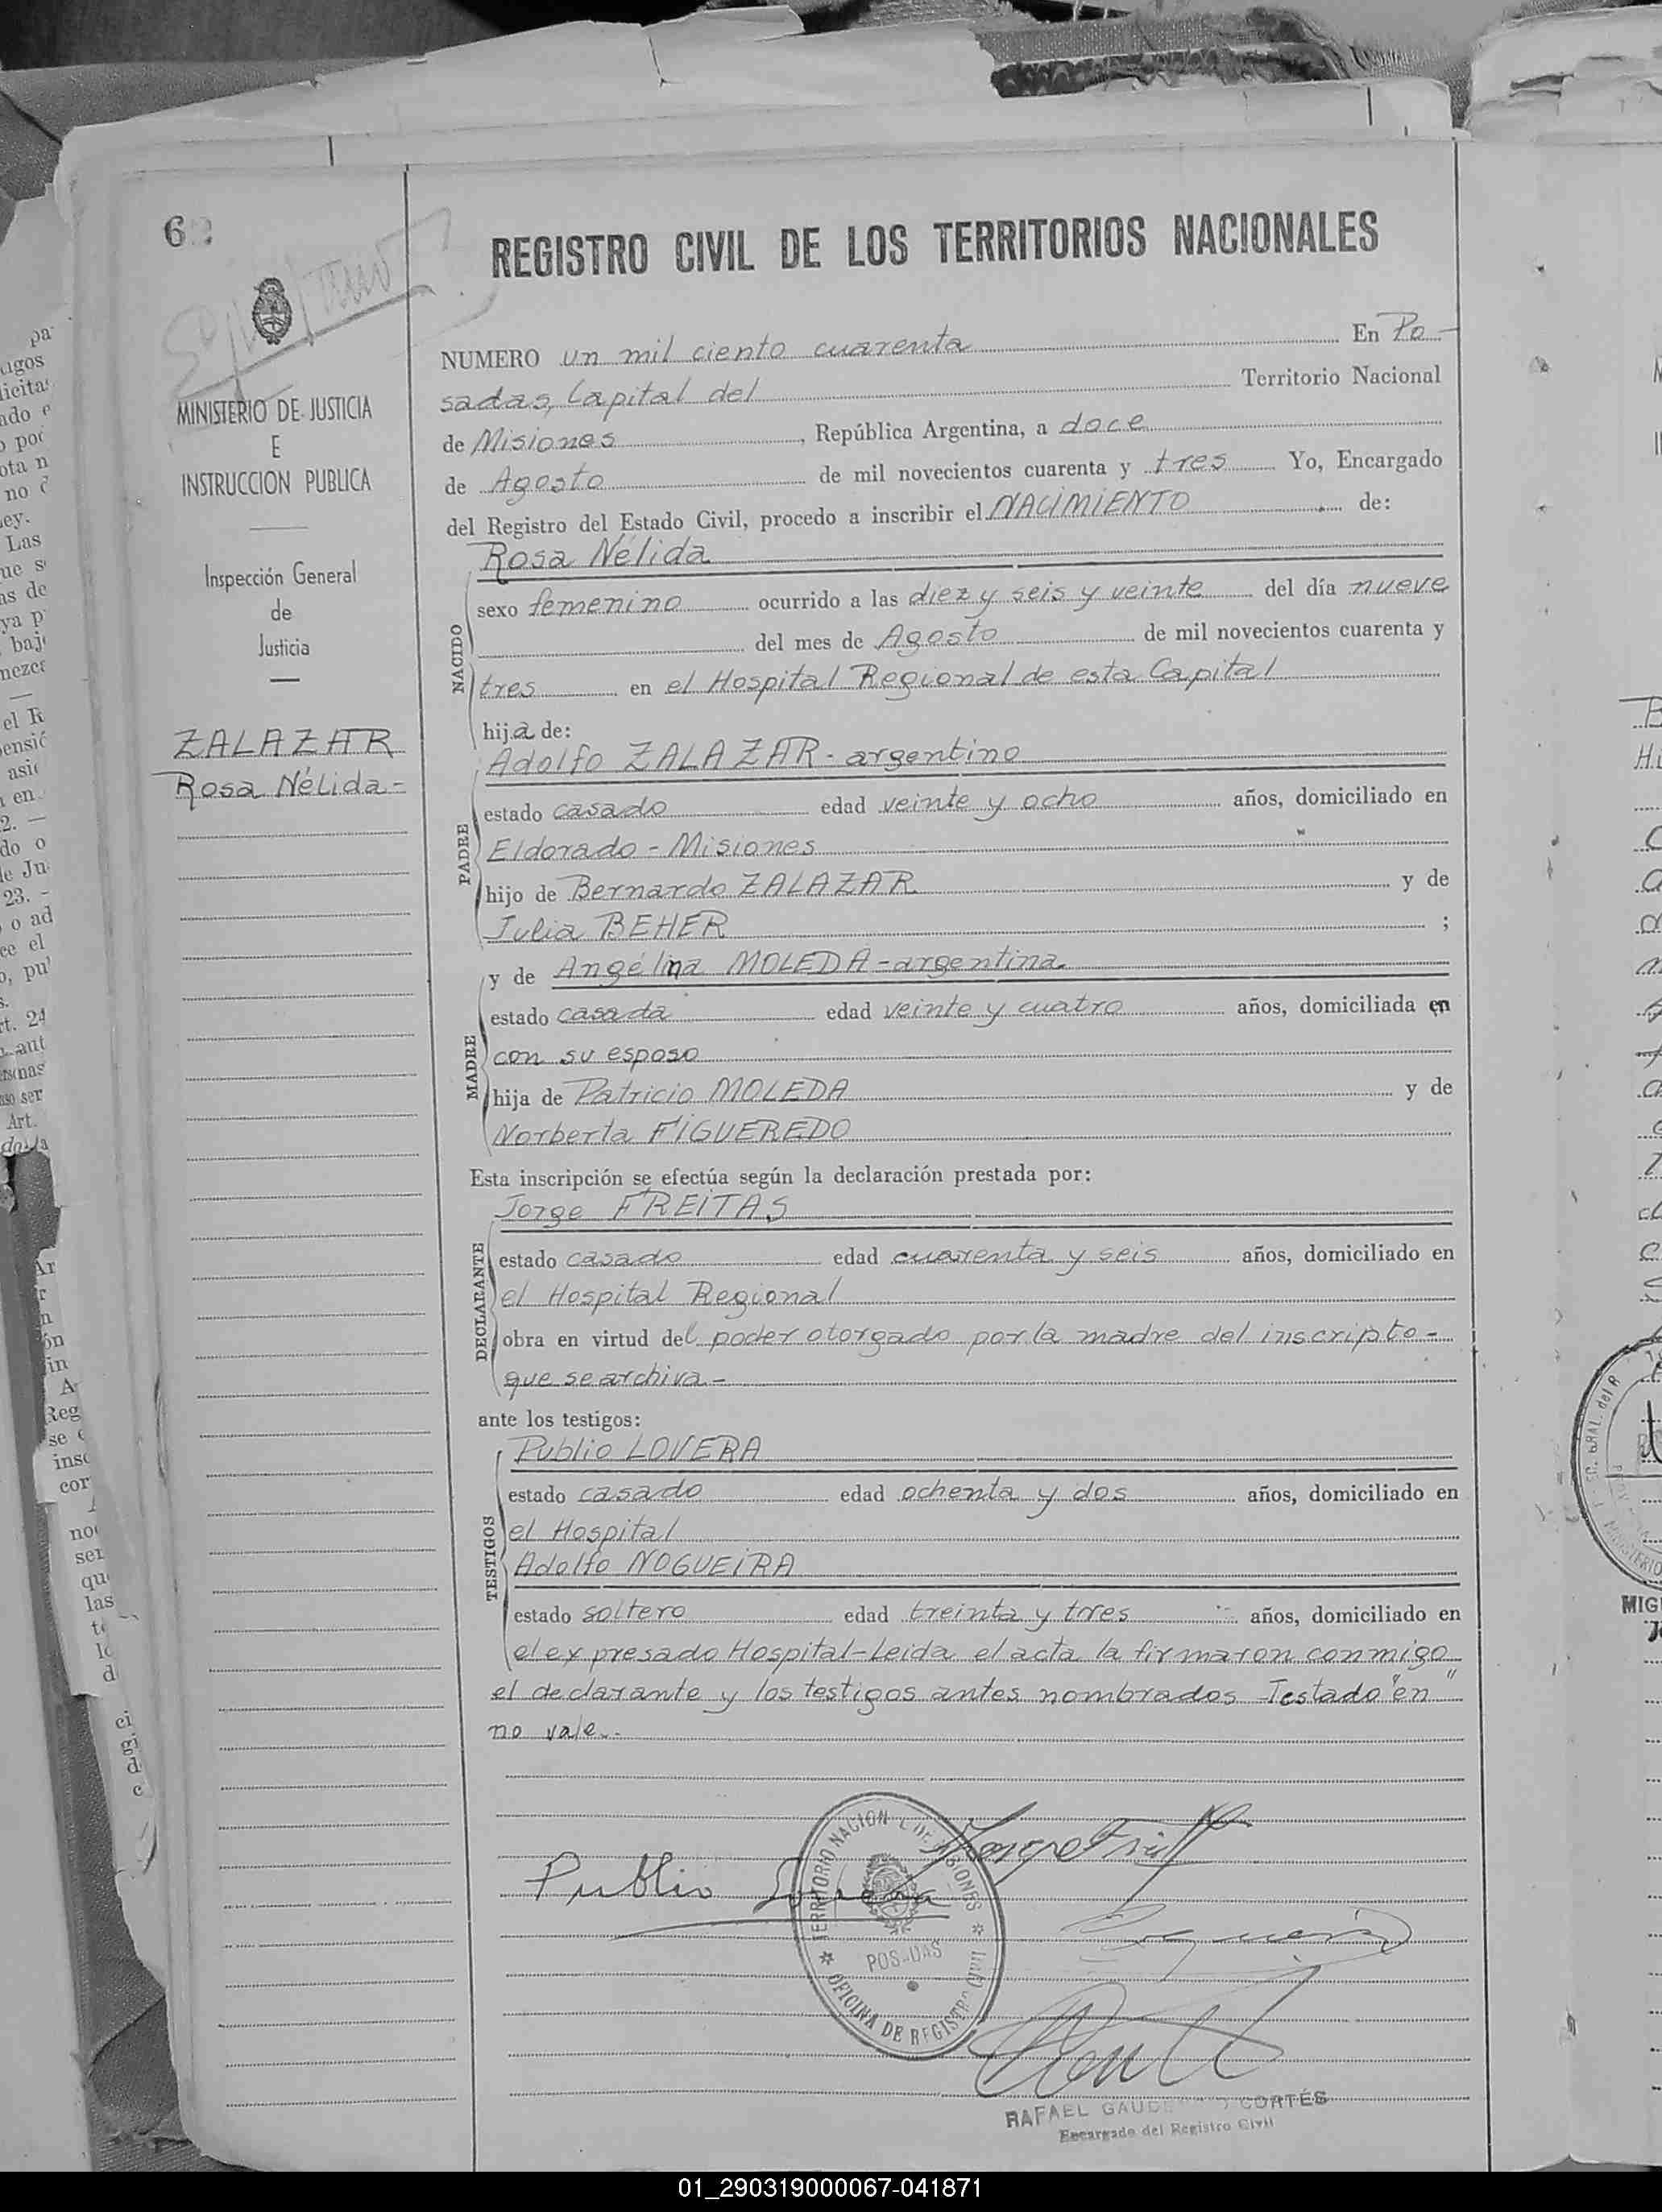 6
REGISTRO CIVIL DE LOS TERRITORIOS NACIONALES
MINISTERIO DE JUSTICIA
E
INSTRUCCION PUBLICA
Inspección General
de
Justicia
ZALAZAR
Rosa Nélida-
NUMERO un mil ciento cuarenta En Po-
sadas, Capital del Territorio Nacional
de Misiones, República Argentina, a doce
de Agosto de mil novecientos cuarenta y tres Yo, Encargado
del Registro del Estado Civil, procedo a inscribir el NACIMIENTO de:
NACIDO
Rosa Nélida
sexo femenino ocurrido a las diez y seis y veinte del día nueve
del mes de Agosto de mil novecientos cuarenta y
tres en el Hospital Regional de esta Capital
hija de:
PADRE
Adolfo ZALAZAR - argentino
estado casado edad veinte y ocho años, domiciliado en
Eldorado - Misiones
hijo de Bernardo ZALAZAR y de
Julia BEHER ;
MADRE
y de Angélina MOLEDA - argentina.
estado casada edad veinte y cuatro años, domiciliada en
con su esposo
hija de Patricio MOLEDA y de
Norberta FIGUEREDO
Esta inscripción se efectúa según la declaración prestada por:
DECLARANTE
Jorge FREITAS
estado casado edad cuarenta y seis años, domiciliado en
el Hospital Regional
obra en virtud del poder otorgado por la madre del inscripto-
que se archiva -
ante los testigos:
TESTIGOS
Publio LOVERA
estado casado edad ochenta y dos años, domiciliado en
el Hospital
Adolfo NOGUEIRA
estado soltero edad treinta y tres años, domiciliado en
el expresado Hospital-Leida el acta la firmaron conmigo
el declarante y los testigos antes nombrados Testado "en"
no vale.-
Publio
TERRITORIO NACIONAL DE MISIONES
POSADAS
OFICINA DE REGISTRO CIVIL
RAFAEL CORTÉS
Encargado del Registro Civil
01_290319000067-041871